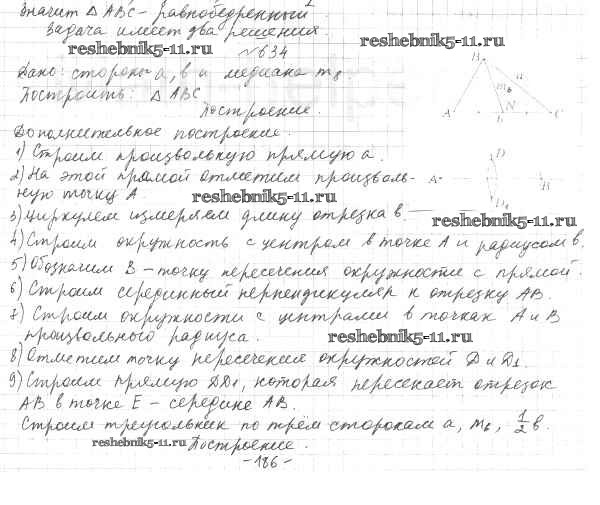 Значит △ ABC - равнобедренный.
Задача имеет два решения.
reshebnik5-11.ru
reshebnik5-11.ru
№634
Дано: стороны a, b и медиана m_b
Построить: △ ABC
Построение.
B
a
m_b
N
A
b
C
Дополнительное построение.
1) Строим произвольную прямую a.
2) На этой прямой отметим произволь-
ную точку A
reshebnik5-11.ru
D
A
B
D₁
3) Циркулем измеряем длину отрезка b.
reshebnik5-11.ru
4) Строим окружность с центром в точке A и радиусом b.
5) Обозначим B - точку пересечения окружности с прямой.
6) Строим серединный перпендикуляр к отрезку AB.
7) Строим окружности с центрами в точках A и B
произвольного радиуса.
reshebnik5-11.ru
8) Отметим точку пересечения окружностей D и D₁.
9) Строим прямую DD₁, которая пересекает отрезок
AB в точке E - середине AB.
Строим треугольник по трём сторонам a, m_b, 1/2 b.
reshebnik5-11.ru
Построение.
-186-